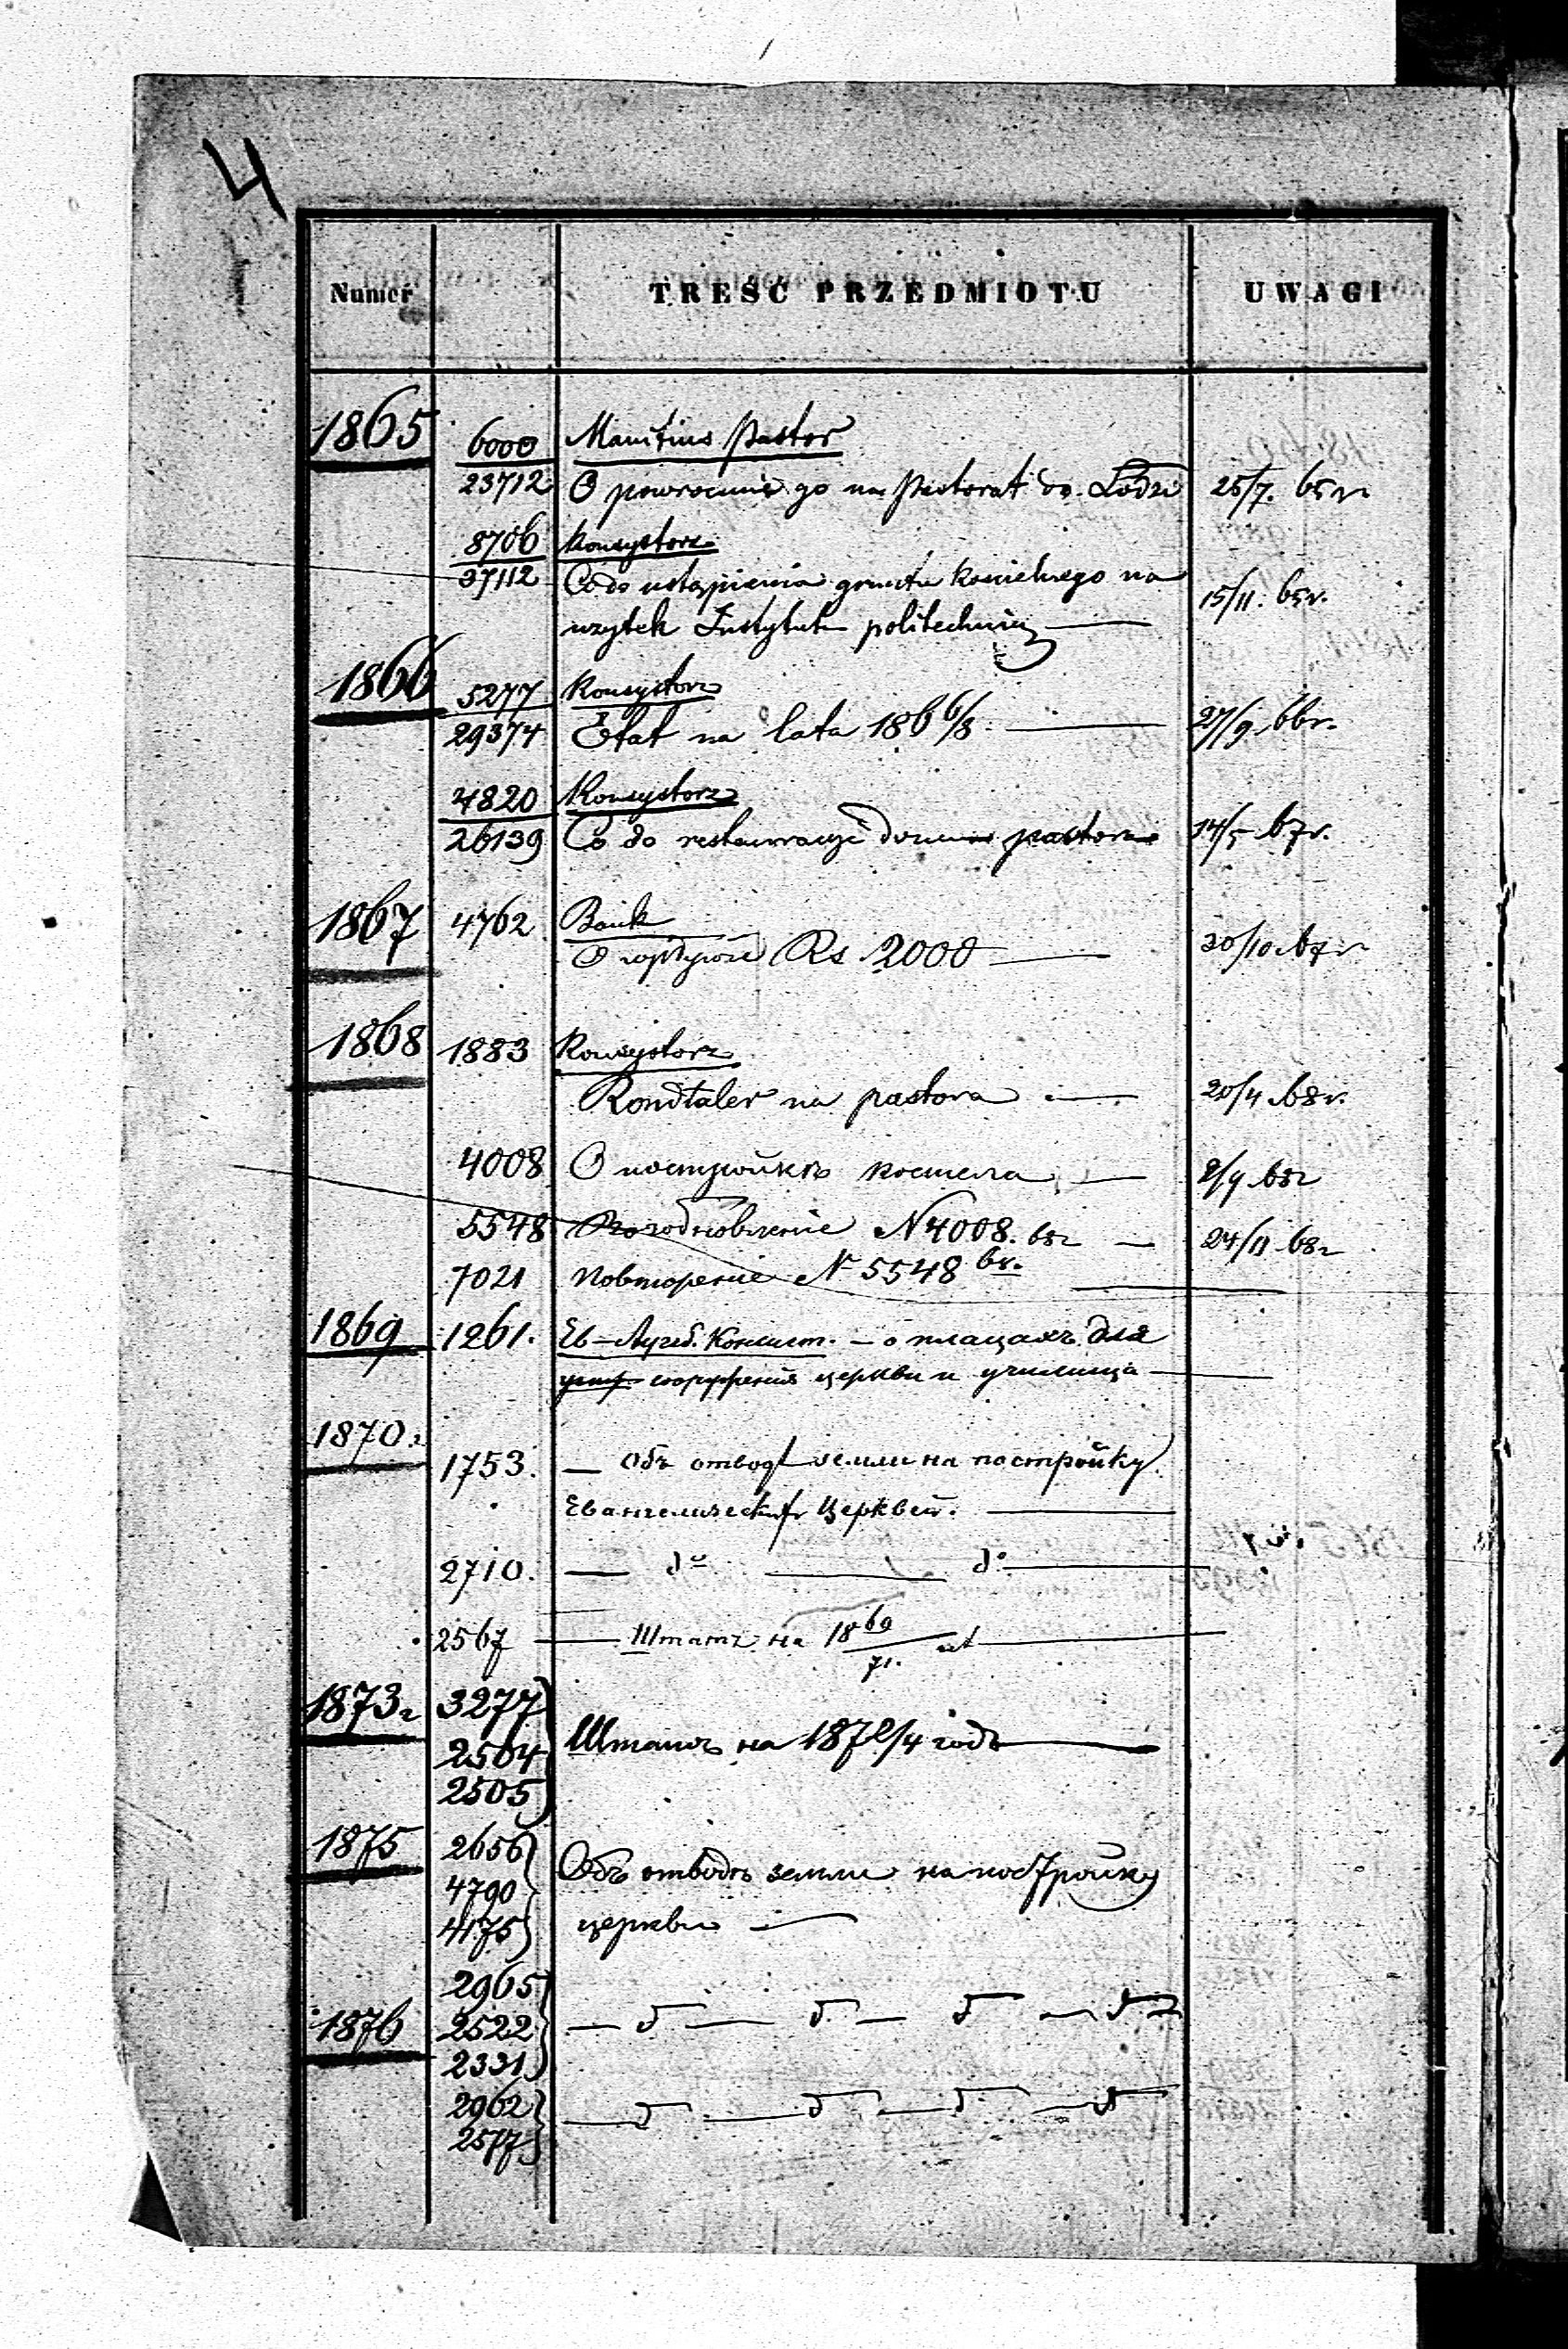 4
Numer TREŚĆ PRZEDMIOTU UWAGI
1865 6000 Mauitius Pastor
23712 O powrocenie go na Pastorat do Łodzi 25/7. 65 r.
8706 Konsystorz
37112 Co do ustąpienia gruntu kościelnego na 15/11. 65 r.
uzytek Instytutu politechnicz
1866 5277 Konsystorz
29374 Etat na lata 186 6/8. 27/9. 66 r.
4820 Konsystorz
26139 Co do restauracyi domu pastora 14/5. 67 r.
1867 4762 Bank
O Rs 2000 30/10. 67 r
1868 1883 Konsystorz
Rondtaler na pastora 20/4. 68 r.
4008 О постройкѣ костела 2/9. 68 г
5548 N 4008. 68 г 24/11. 68 г
7021 Повторение N 5548 68.
1869 1261. Ев–Аугсб. Консист. – о плацахъ для
сооруженія церкви и училища
1870 г
1753. — Объ отводѣ земли на постройку
Евангелическихъ Церквей.
2710. — dº — dº
2567 — Штатъ на 18 69/71. лѣт
1873 г 3277
2504 Штатъ на 187 2/4 годъ
2505
1875 2656
4790 Объ отводѣ земли на постройку
4175 церкви
2965
1876 2522 — d — d — d — d
2331
2962 — d — d — d — d
2577